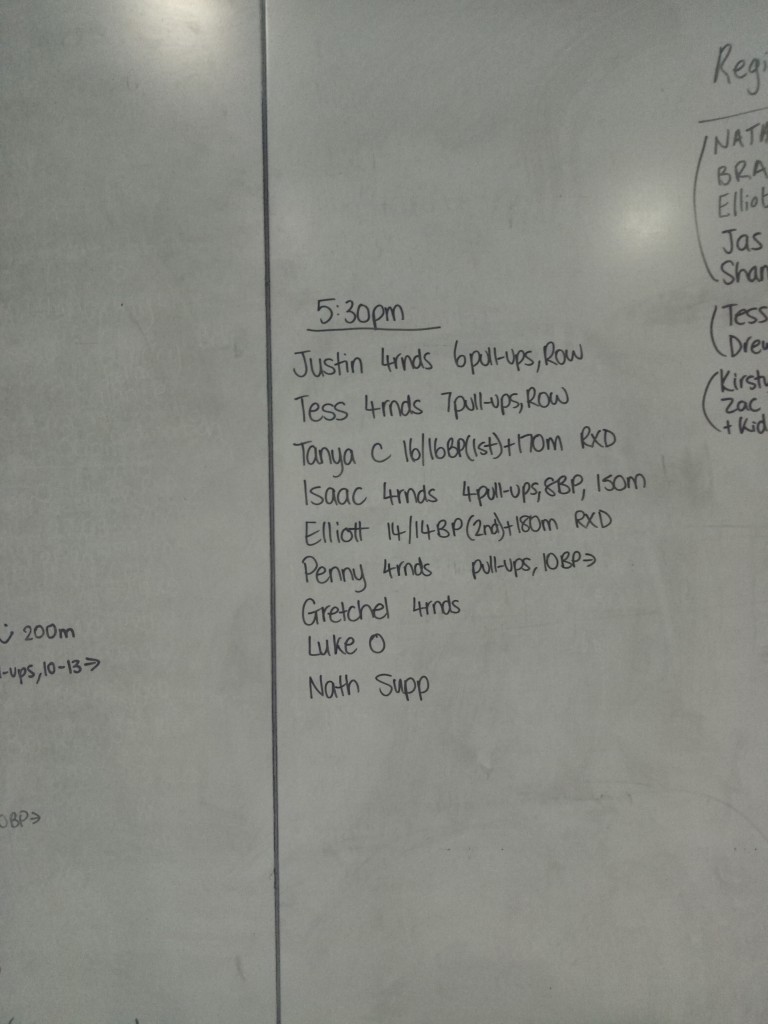 5:30pm
Justin 4rnds 6pull-ups, Row
Tess 4rnds 7pull-ups, Row
Tanya C 16/16BP(1st)+170m RXD
Isaac 4rnds 4pull-ups, 8BP, 150m
Elliott 14/14BP(2nd)+180m RXD
Penny 4rnds pull-ups, 10BP→
Gretchel 4rnds
Luke O
Nath Supp
200m
-ups, 10-13→
0BP→
Regi
NATA
BRA
Elliot
Jas
Shan
Tess
Drew
Kirsty
Zac
+ Kid